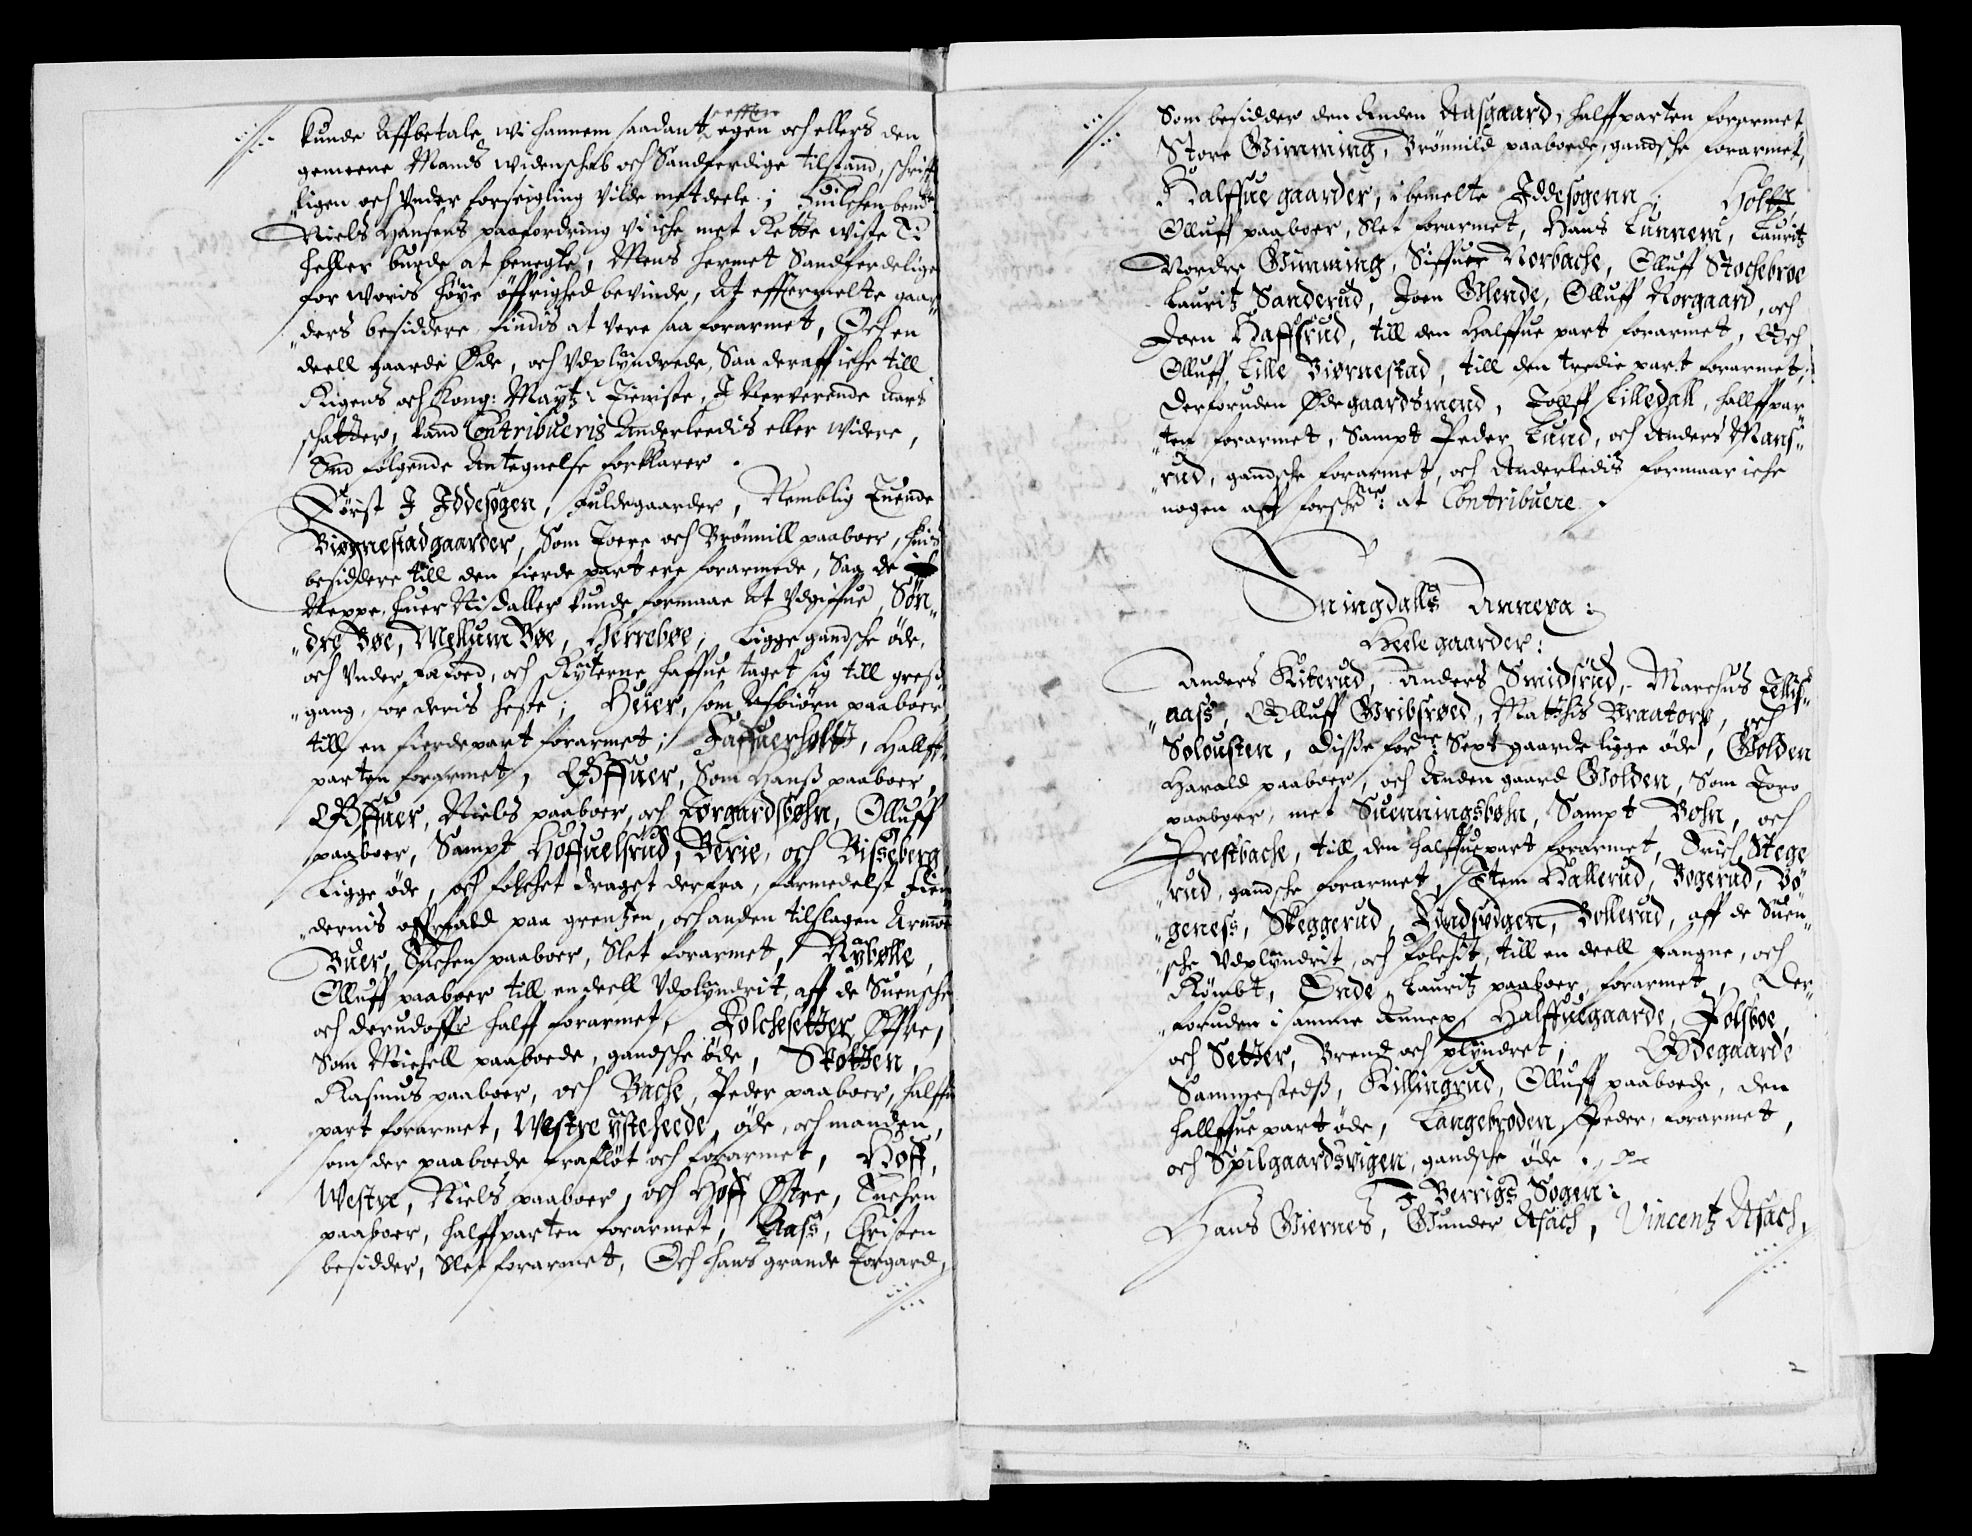 kunde Affbetale, wi hannem saadant effter egen och ellers den
gemeene Mands widenskab och Sandferdige tilstand, schrifft
ligen och Vnder forseigling Vilde metdeele; Huilchen bemte
Niels Hansens paafordring Vi iche met Rette wiste Ei
heller burde at benegte, Mens hermet Sandferdelige
for woris høye öffrighed bevinde, At efftermelte gaar
ders besiddere findis at vere saa forarmet, Och en
deell gaarde Øde, och Vdplyndrede, Saa deraff iche till
Rigens och Kong: Maytz: Tieniste, I Nerverende Aars
schatter, kand Contribueris Anderleedis eller widere,
End følgende Antegnelse forklarer.
Först I Iddesogen, Fuldegaarder, Nemblig Tuende
Biørnestadgaarder, Som Toere och Brönnill paaboer, huis
besiddere till den fierde part ere forarmede, Saa de
Neppe huer Rigsdaller kunde formaae at Vdgiffue, Søn
dre Bøe, Mellum Bøe, Herrebøe, Ligge gandsche öde,
och Vnder, och Rÿterne haffue taget sig till gress
gang, for deris heste; Heuer, som Asbiörn paaboer,
till en fierdepart forarmet; Haffuerholtt, Hallff
parten forarmet, Offuer, Som Hanss paaboer,
Offuer, Niels paaboer, och Torgardsbøhn, Olluff
paaboer, Sampt Hoffuelsrud, Berie, och Bisseberg
Ligge öde, och folchet draget derfra, formedelst Fien
dernis offuerfald paa grentzen, och anden tilslagen Armod
Buer, Tuchen paaboer, Slet forarmet, Rÿbølle,
Olluff paaboer till en deell Vdplÿndrit, aff de Suensche
och derudoffr halff forarmet, Folchesetter Øffre,
Som Michell paaboede, gandsche öde, Skotten,
Rasmus paaboer, och Bache, Peder paaboer, halffue
part forarmet, Westre ÿsteheede, öde, och manden,
som der paaboede frafløt och forarmet, Hoff,
Westre, Niels paaboer, och Hoff Østre, Tuchen
paaboer, halffparten forarmet, Aass, Christen
besidder, Slet forarmet, Och hans grande Torgard,
Som besidder den Anden Aasgaard, halffparten forarmet
Store Gimming, Brönnild paaboede, gandsche forarmet,
Halffue gaarder, i bemelte Iddesogenn; Holtt
Olluff paaboer, Slet forarmet, Hans Lunnem, Lauritz
Nordre Gimming, Siffuer Norbache, Olluff Stochebröe
Lauritz Sanderud, Joen Glende, Olluff Norgaard, och
Joen Haffsrud, till den Halffue part forarmet, Och
Olluff Lille Biørnestad, till den tredie part forarmet;
Derforuden Ødegaardsmend, Tolff Lilledall, hallffpar
ten forarmet, Sampt Peder Lund, och Anders Mans
rud, gandsche forarmet, och Anderledis formaar iche
nogen aff forschr:ne at Contribuere.
Eningdalls Annexa:
Heele gaarder:
Anders Kiterud, Anders Smidsrud, Marchus Tellis
aass, Olluff Gribsrøed, Matthis Braatorp, och
Solousten, disse for:ne Sex gaarde ligge öde, Holden
Harald paaboer, och Anden gaard Holden, Som Toro
paaboer, met Suenningsbøhn, Sampt Bøhn, och
Prestbache, till den halffuepart forarmet, Erich Stege
rud, gandsche forarmet, Item Hallerud, Bogerud, Bö
geness, Skeggerud, Sundsvigen, Bollerud, aff de Suen
sche Vdplyndrit, och folchit, till en deell fangne, och
Römbt, Ende, Lauritz paaboer, forarmet, Der
foruden i samme Annex, Halffuegaarde, Polsboe,
och Setter, Brend och plyndret; Ødegaarde
Sammestedss, Killingrud, Olluff paaboede, den
hallffue part öde, Langebroden, Peder, forarmet,
och Spilgaardsvigen, gandsche öde.
I Berrigs Sogen:
Hans Giernes, Gunder Asach, Vincentz Asach,
2